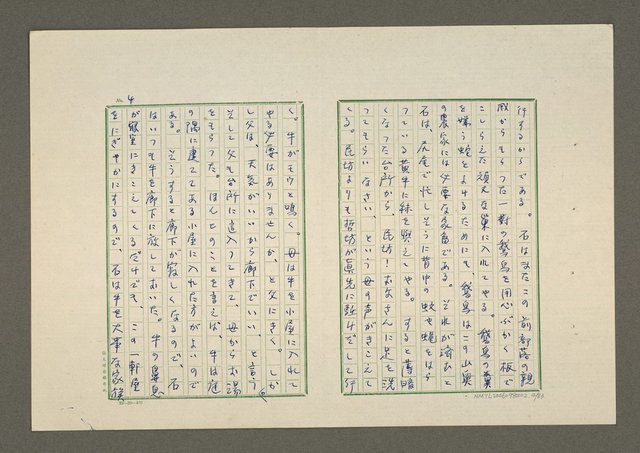 行するからである。石はまたこの前部落の親
戚からもらった一対の鵞鳥を用心ぶかく板で
こしらえた頑丈な巣に入れてやる。鵞鳥の糞
を嫌う蛇をよけるためにも、鵞鳥はこの山奥
の農家には必要な家畜である。それが済むと
石は、尻尾で忙しそうに背中の蚊や蠅をはら
っている黄牛に秣を與えてやる。すると薄暗
くなった台所から、民坊！お父さんに足を洗
ってもらいなさい、という母の声がきこえて
くる。民坊よりも哲坊が真先に駈けだして行
く。牛がモウと鳴く。母は牛を小屋に入れて
やる必要はありませんか、と父にきく。しか
し父は、天気がいいから廊下でいい、と言う。
そして父も台所に這入ってきて、母からお湯
をもらった。ほんとのことを言えば、牛は庭
の隅に建ててある小屋に入れた方がよいので
ある。そうすると廊下が寂しくなるので、石
はいつも牛を廊下に放しておいた。牛の鼻息
が寝室にきこえてくるだけでも、この一軒屋
をにぎやかにするので、石は牛を大事な家族
No. 4
NMTL20060780002 4/86